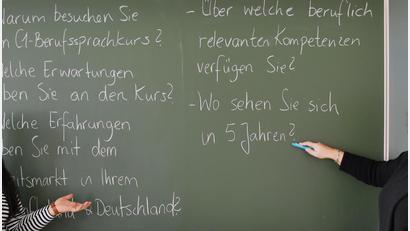 Warum besuchen Sie
en C1-Berufssprachkurs?
Welche Erwartungen
ben Sie an den Kurs?
Welche Erfahrungen
ben Sie mit dem
eitsmarkt in Ihrem
& Deutschland?
- Über welche beruflich
relevanten Kompetenzen
verfügen Sie?
- Wo sehen Sie sich
in 5 Jahren?